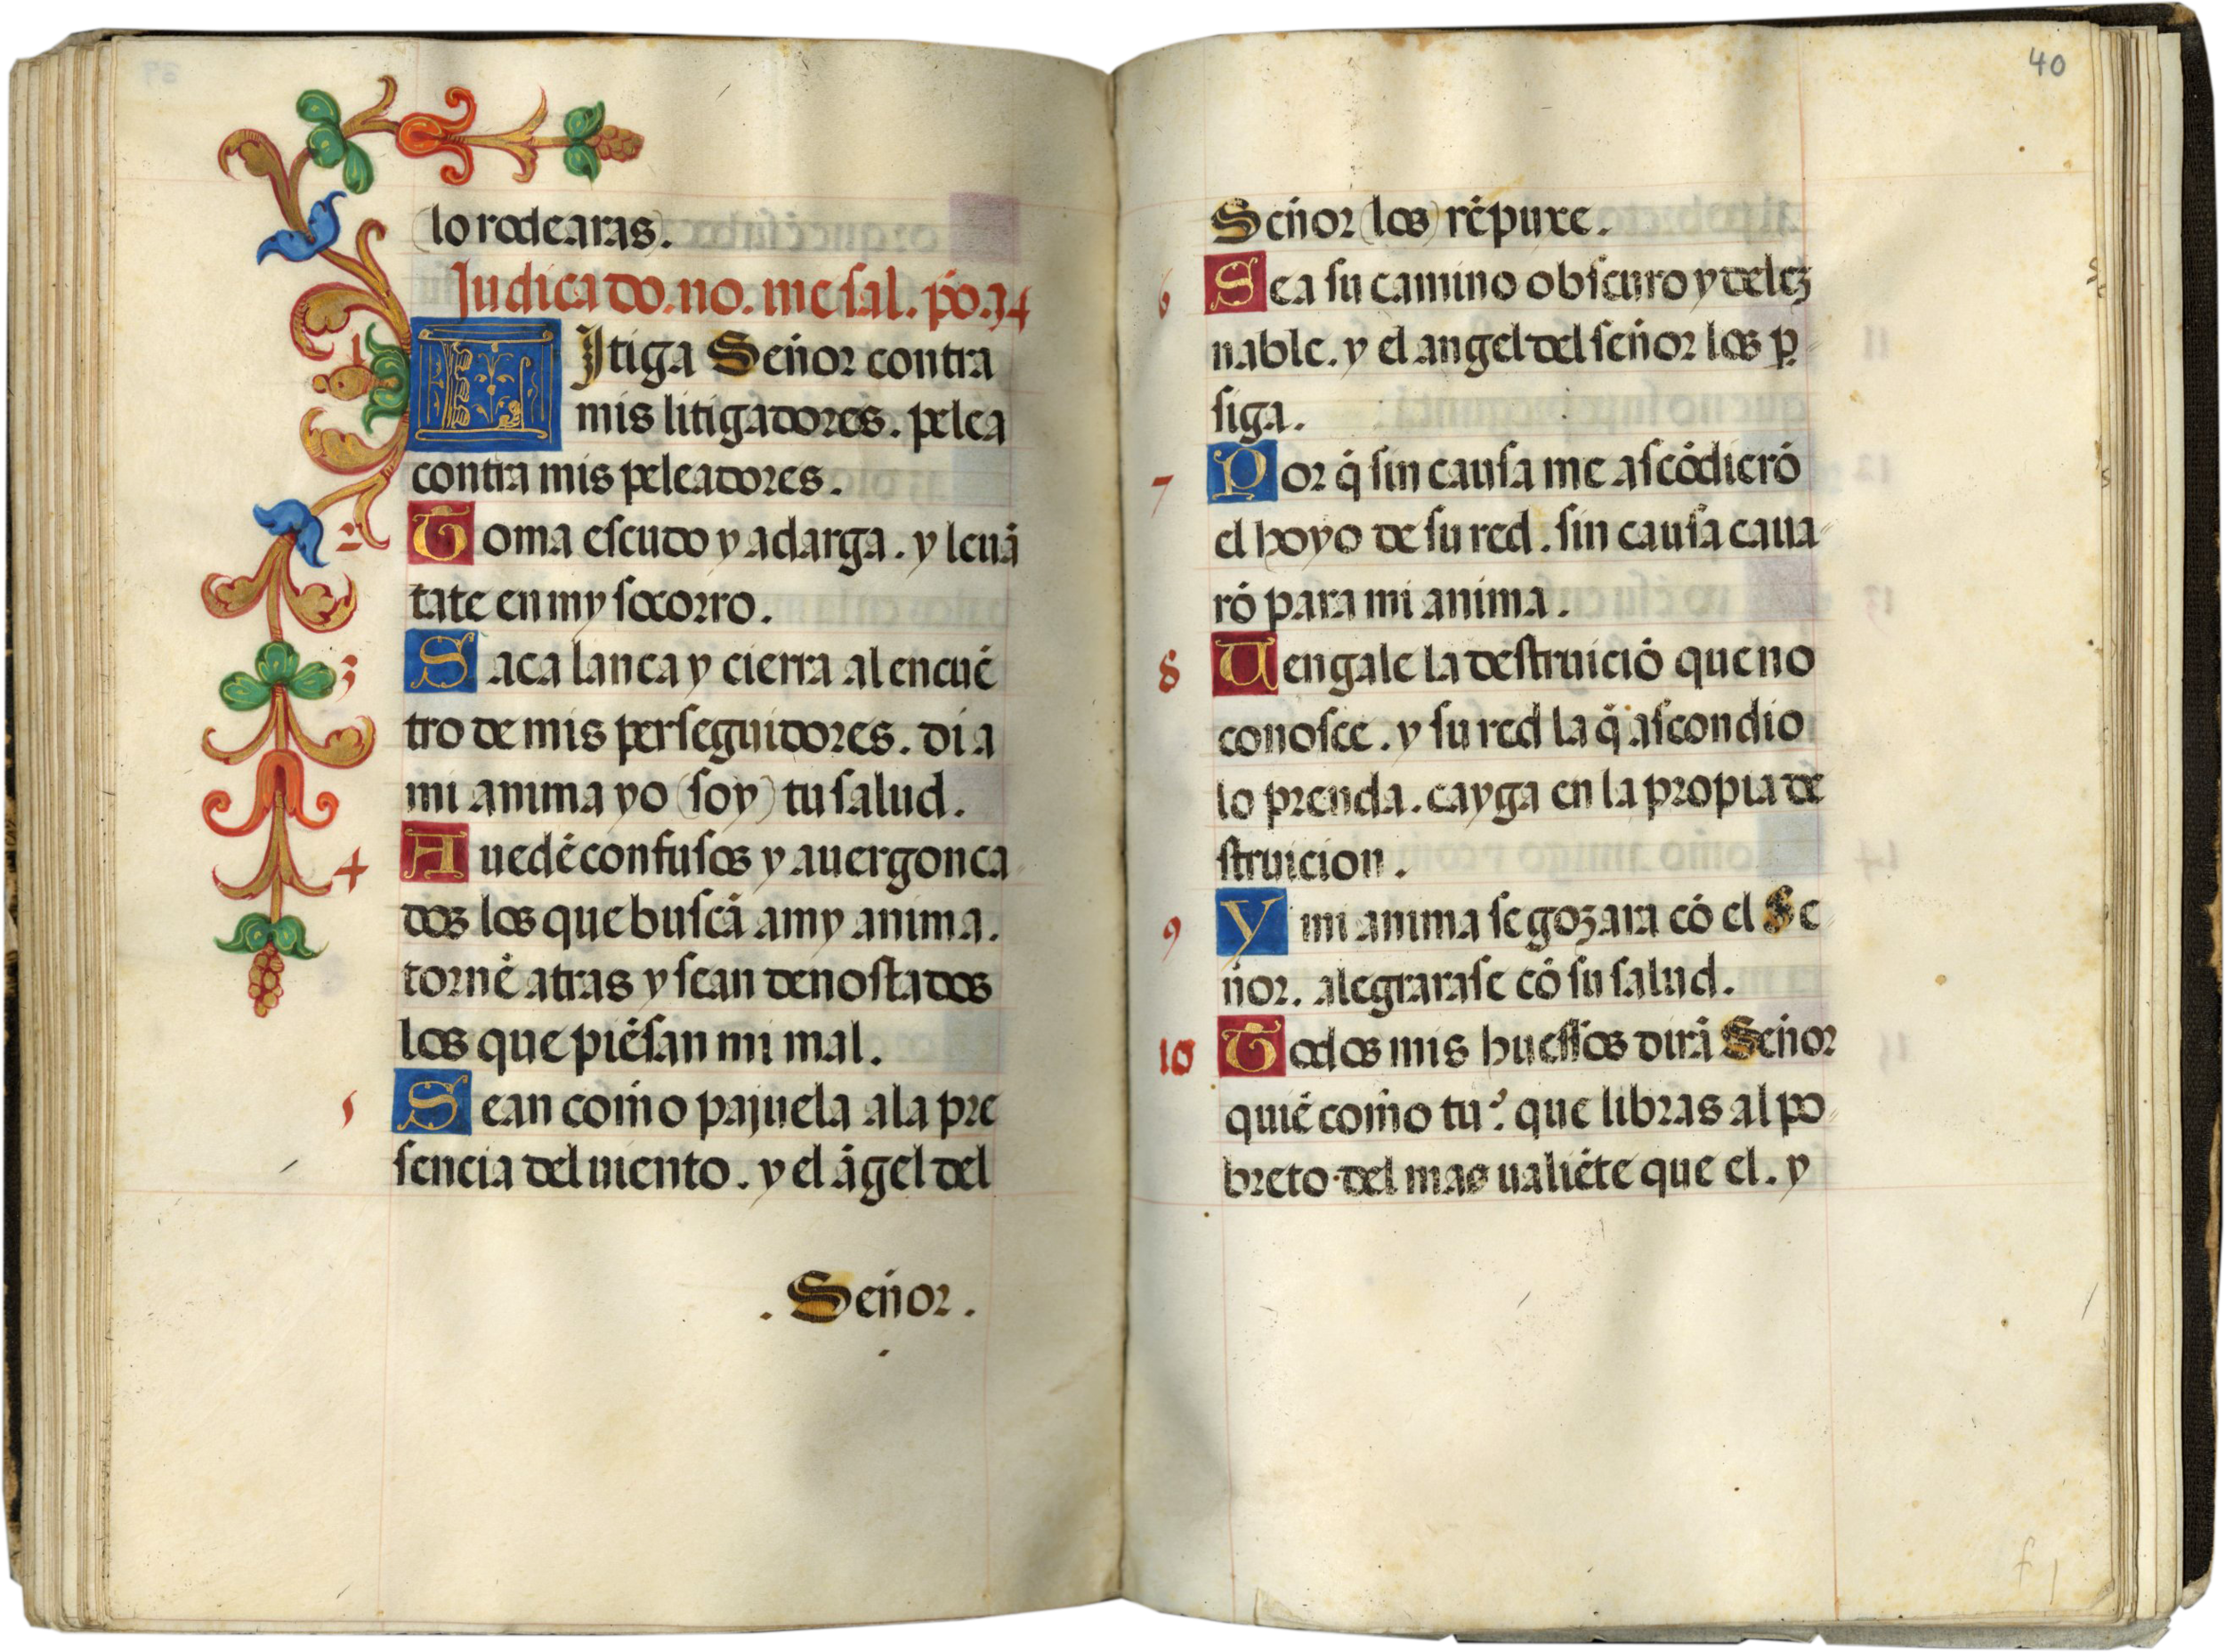 (lo rodearas).
Judica do. no. me sal. põ. 34
1 LJtiga Señor contra
mis litigadores. pelea
contra mis peleadores.
2 Toma escudo y adarga. y leuã
tate en my socorro.
3 Saca lanca y cierra al encuẽ
tro de mis perseguidores. di a
mi anima yo (soy) tu salud.
4 Auedẽ confusos y auergonca
dos los que buscã a my anima.
tornẽ atras y sean denostados
los que piẽsan mi mal.
5 Sean com̃o pajuela a la pre
sencia del uiento. y el ãgel del
. Señor .
40
Señor (los) rẽpuxe.
6 Sea su camino obscuro y delez
nable. y el angel del señor los ꝑ-
siga.
7 Por q̃ sin causa me ascõdierõ
el hoyo de su red. sin causa caua-
rõ para mi anima.
8 Uengale la destruiciõ que no
conosce. y su red la q̃ ascondio
lo prenda. cayga en la propia de
struicion.
9 Y mi anima se gozara cõ el Se-
ñor. alegrarase cõ su salud.
10 Todos mis huessos dirã Señor
quiẽ com̃o tu? que libras al po-
breto del mas ualiẽte que el. y